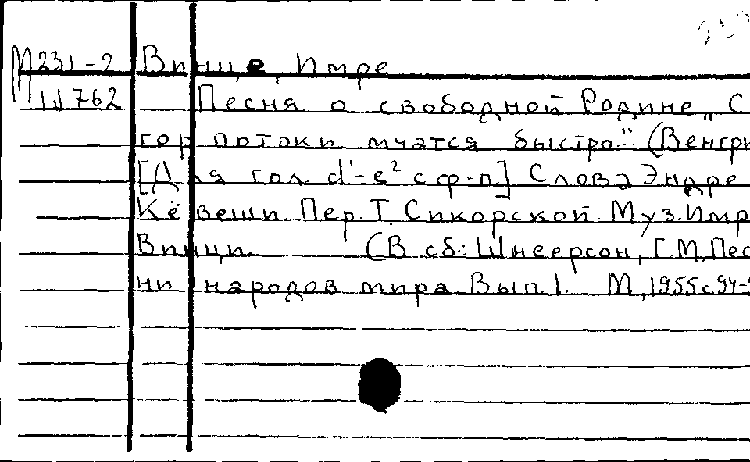 М231-2 Винце, Имре
М11762 Песня о свободной Родине „С
гор потоки мчатся быстро." (Венгри
[Для гол. d'-e² с ф-п.] Слова Эндре
Кёвеши Пер. Т. Сикорской. Муз. Имр
Винци. (В сб.: Шнеерсон, Г.М. Пес
ни народов мира Вып. 1. М., 1955 с 94-